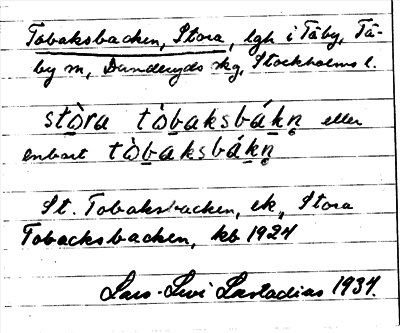 Tobaksbacken, Stora, lgh i Täby, Tä-
by sn, Danderyds skg, Stockholms l.
stò̱ra tò̱baksbáḵn̥ eller
enbart tò̱baksbáḵn̥
St. Tobaksbacken, ek, Stora
Tobacksbacken, kb 1924
Lars-Levi Læstadius 1934.